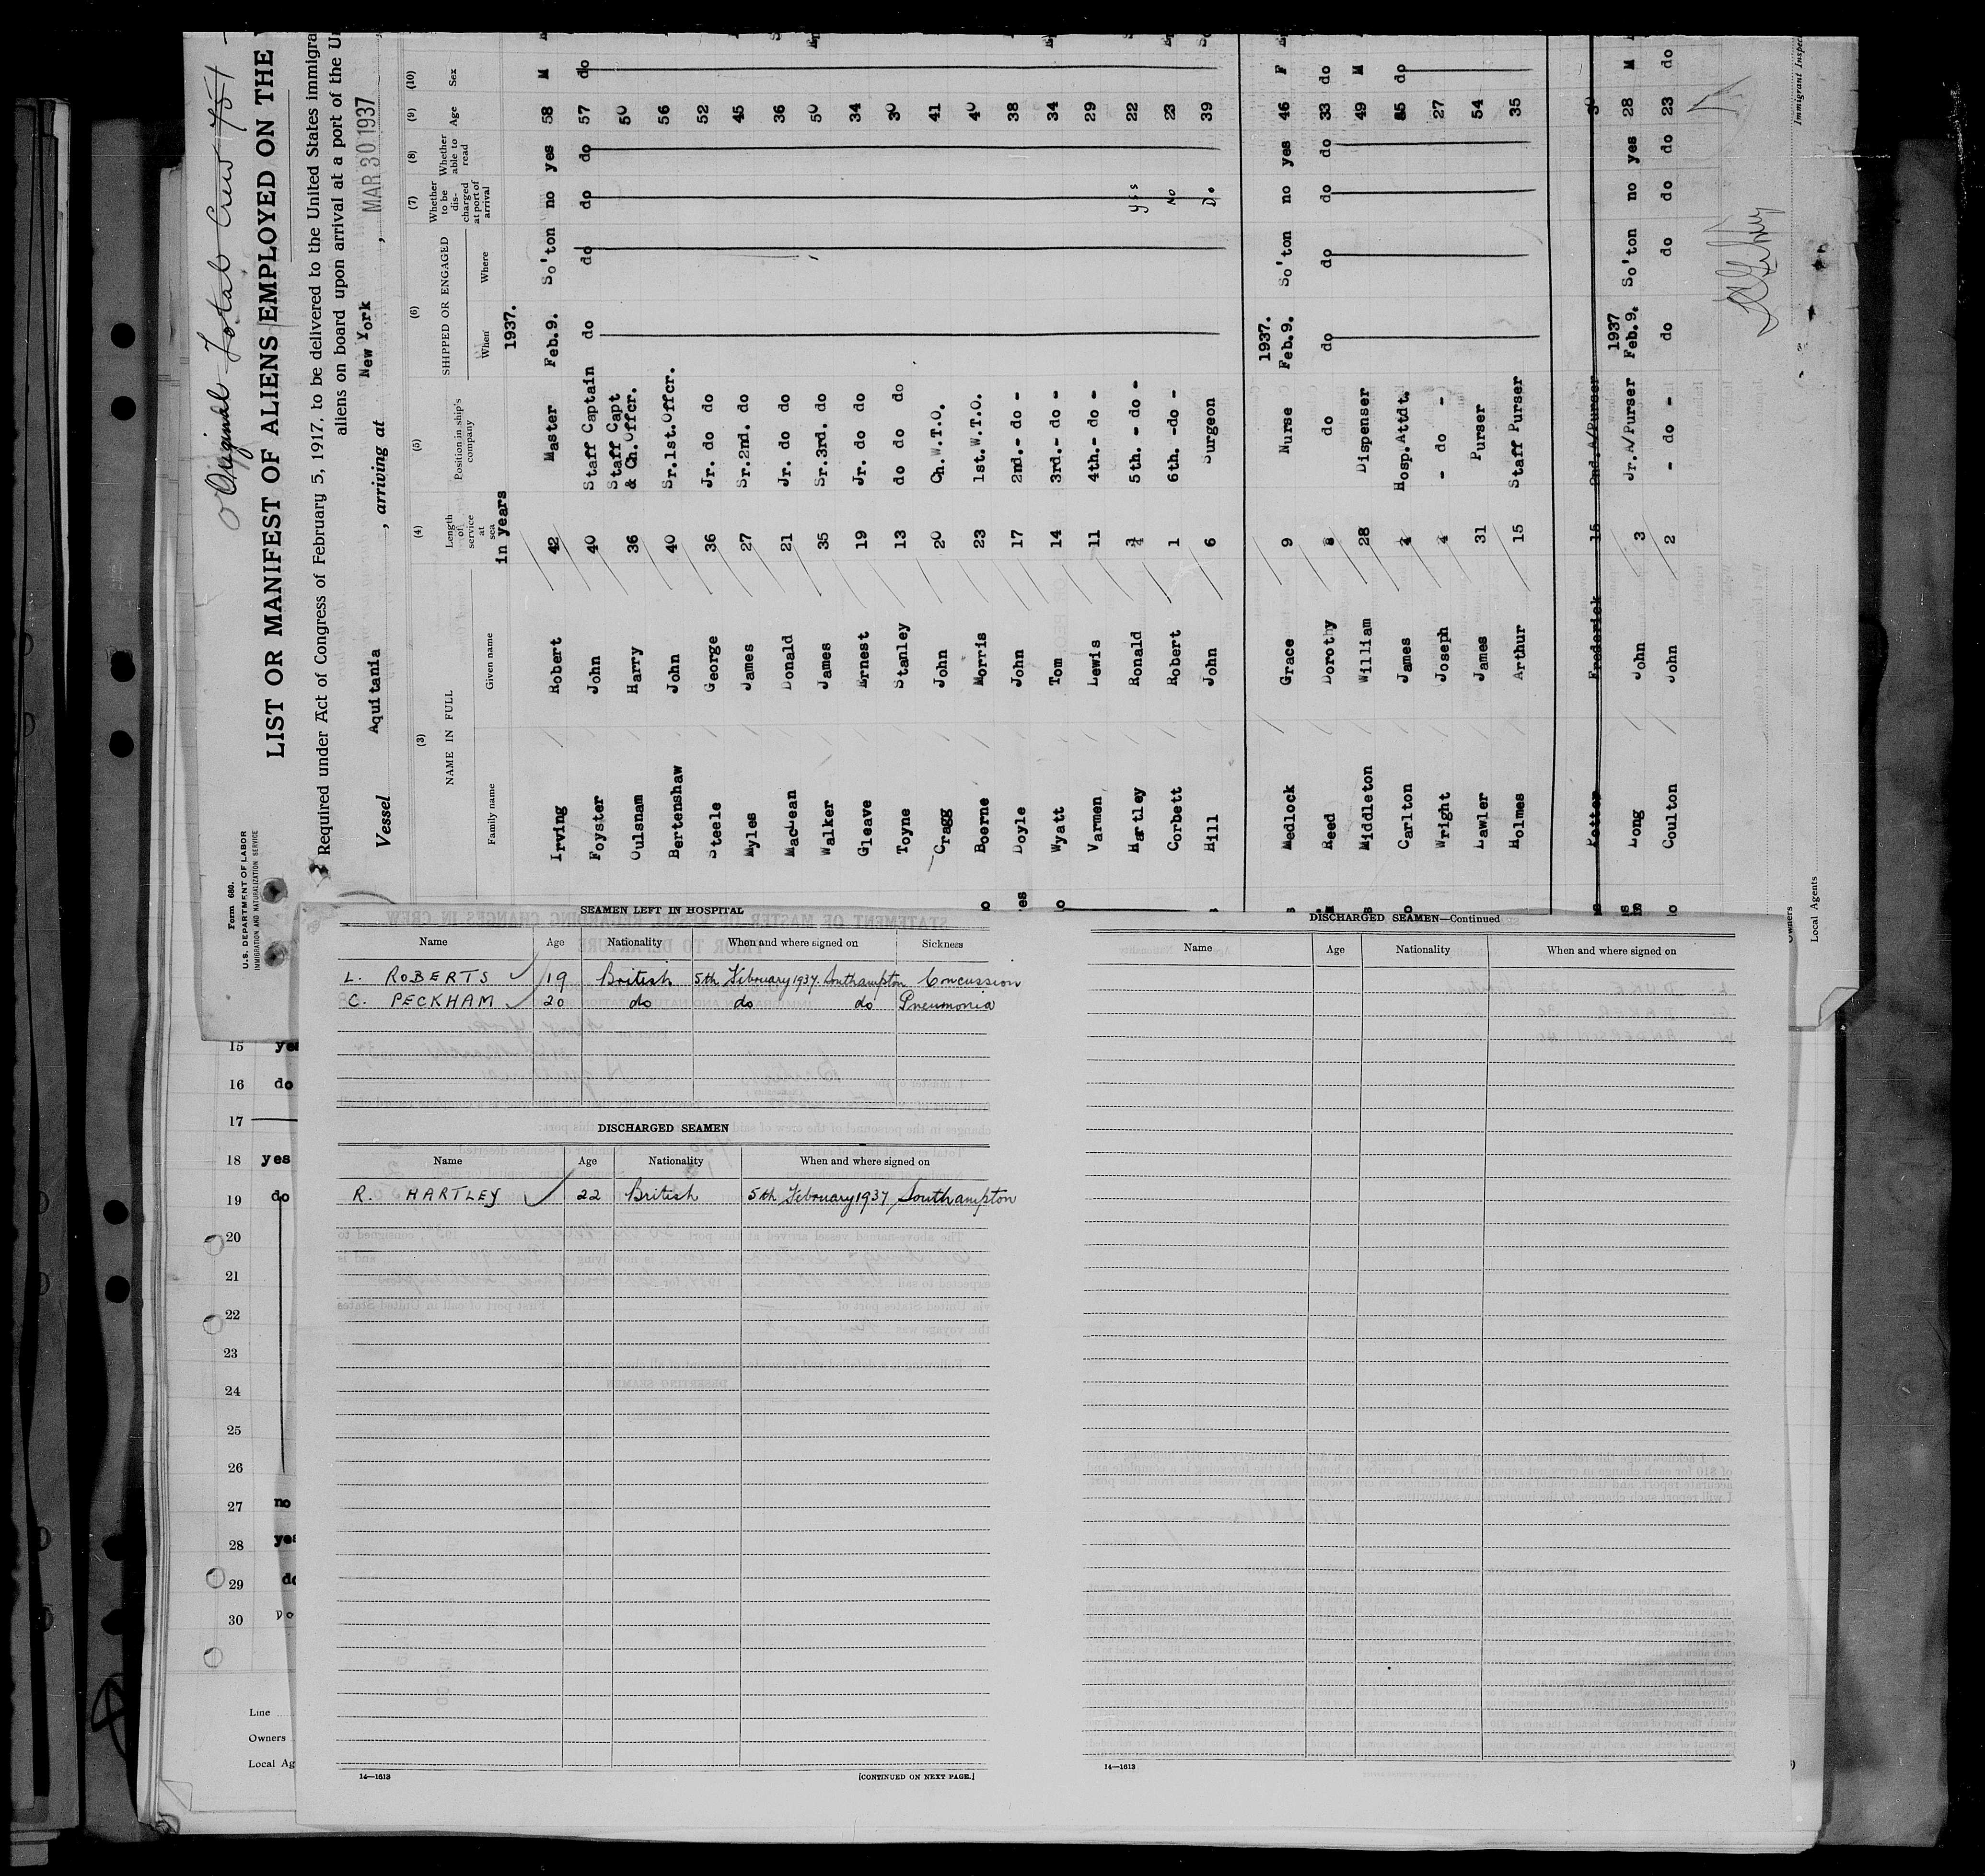 Original Total Crew 751
Form 680.
U. S. DEPARTMENT OF LABOR
IMMIGRATION AND NATURALIZATION SERVICE
LIST OR MANIFEST OF ALIENS EMPLOYED ON THE
Required under Act of Congress of February 5, 1917, to be delivered to the United States immigra
aliens on board upon arrival at a port of the Un
Vessel Aquitania , arriving at New York , MAR 30 1937
(3) (4) (5) (6) (7) (8) (9) (10)
NAME IN FULL Length of service at sea Position in ship's company SHIPPED OR ENGAGED Whether to be discharged at port of arrival Whether able to read Age Sex
Family name Given name When Where
in years 1937.
Irving Robert 42 Master Feb.9. So'ton no yes 58 M
Foyster John 40 Staff Captain do do do do 57 do
Oulsnam Harry 36 Staff Capt & Ch.Offcr. 50
Bertenshaw John 40 Sr.1st.Offcr. 56
Steele George 36 Jr. do do 52
Myles James 27 Sr.2nd. do 45
MacLean Donald 21 Jr. do do 36
Walker James 35 Sr.3rd. do 50
Gleave Ernest 19 Jr. do do 34
Toyne Stanley 13 do do do 30
Cragg John 20 Ch.W.T.O. 41
Boerne Morris 23 1st.W.T.O. 40
Doyle John 17 2nd.- do - 38
Wyatt Tom 14 3rd.- do - 34
Varmen Lewis 11 4th.- do - 29
Hartley Ronald 5th. - do - yes 22
Corbett Robert 1 6th. -do - No 23
Hill John 6 Surgeon Do 39
1937.
Medlock Grace 9 Nurse Feb.9. So'ton no yes 46 F
Reed Dorothy 8 do do do do do 33 do
Middleton William 28 Dispenser 49 M
Carlton James Hosp.Attdt. do
Wright Joseph 4 - do - 27
Lawler James 31 Purser 54
Holmes Arthur 15 Staff Purser 35
Potter Frederick 15 2nd.A/Purser 30
1937
Long John 3 Jr.A/Purser Feb.9. So'ton no yes 28 M
Coulton John 2 - do - do do do do 23 do
Immigrant Inspec
Owners
Local Agents
SEAMEN LEFT IN HOSPITAL
Name Age Nationality When and where signed on Sickness
L. ROBERTS 19 British 5th February 1937. Southampton Concussion
C. PECKHAM 20 do do do Pneumonia
DISCHARGED SEAMEN
Name Age Nationality When and where signed on
R. HARTLEY 22 British 5th February 1937 Southampton
14—1613 [CONTINUED ON NEXT PAGE.]
DISCHARGED SEAMEN—Continued
Name Age Nationality When and where signed on
14—1613
15 yes
16 do
17
18 yes
19 do
20
21
22
23
24
25
26
27 no
28 yes
29 do
30 Do
Line
Owners
Local Ag